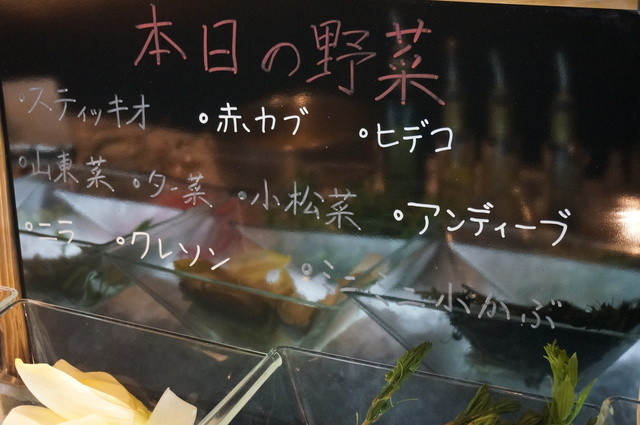 本日の野菜
・スティッキオ ・赤カブ ・ヒデコ
・山東菜 ・ター菜 ・小松菜 ・アンディーブ
・ニラ ・クレソン ・ミニミニ小かぶ